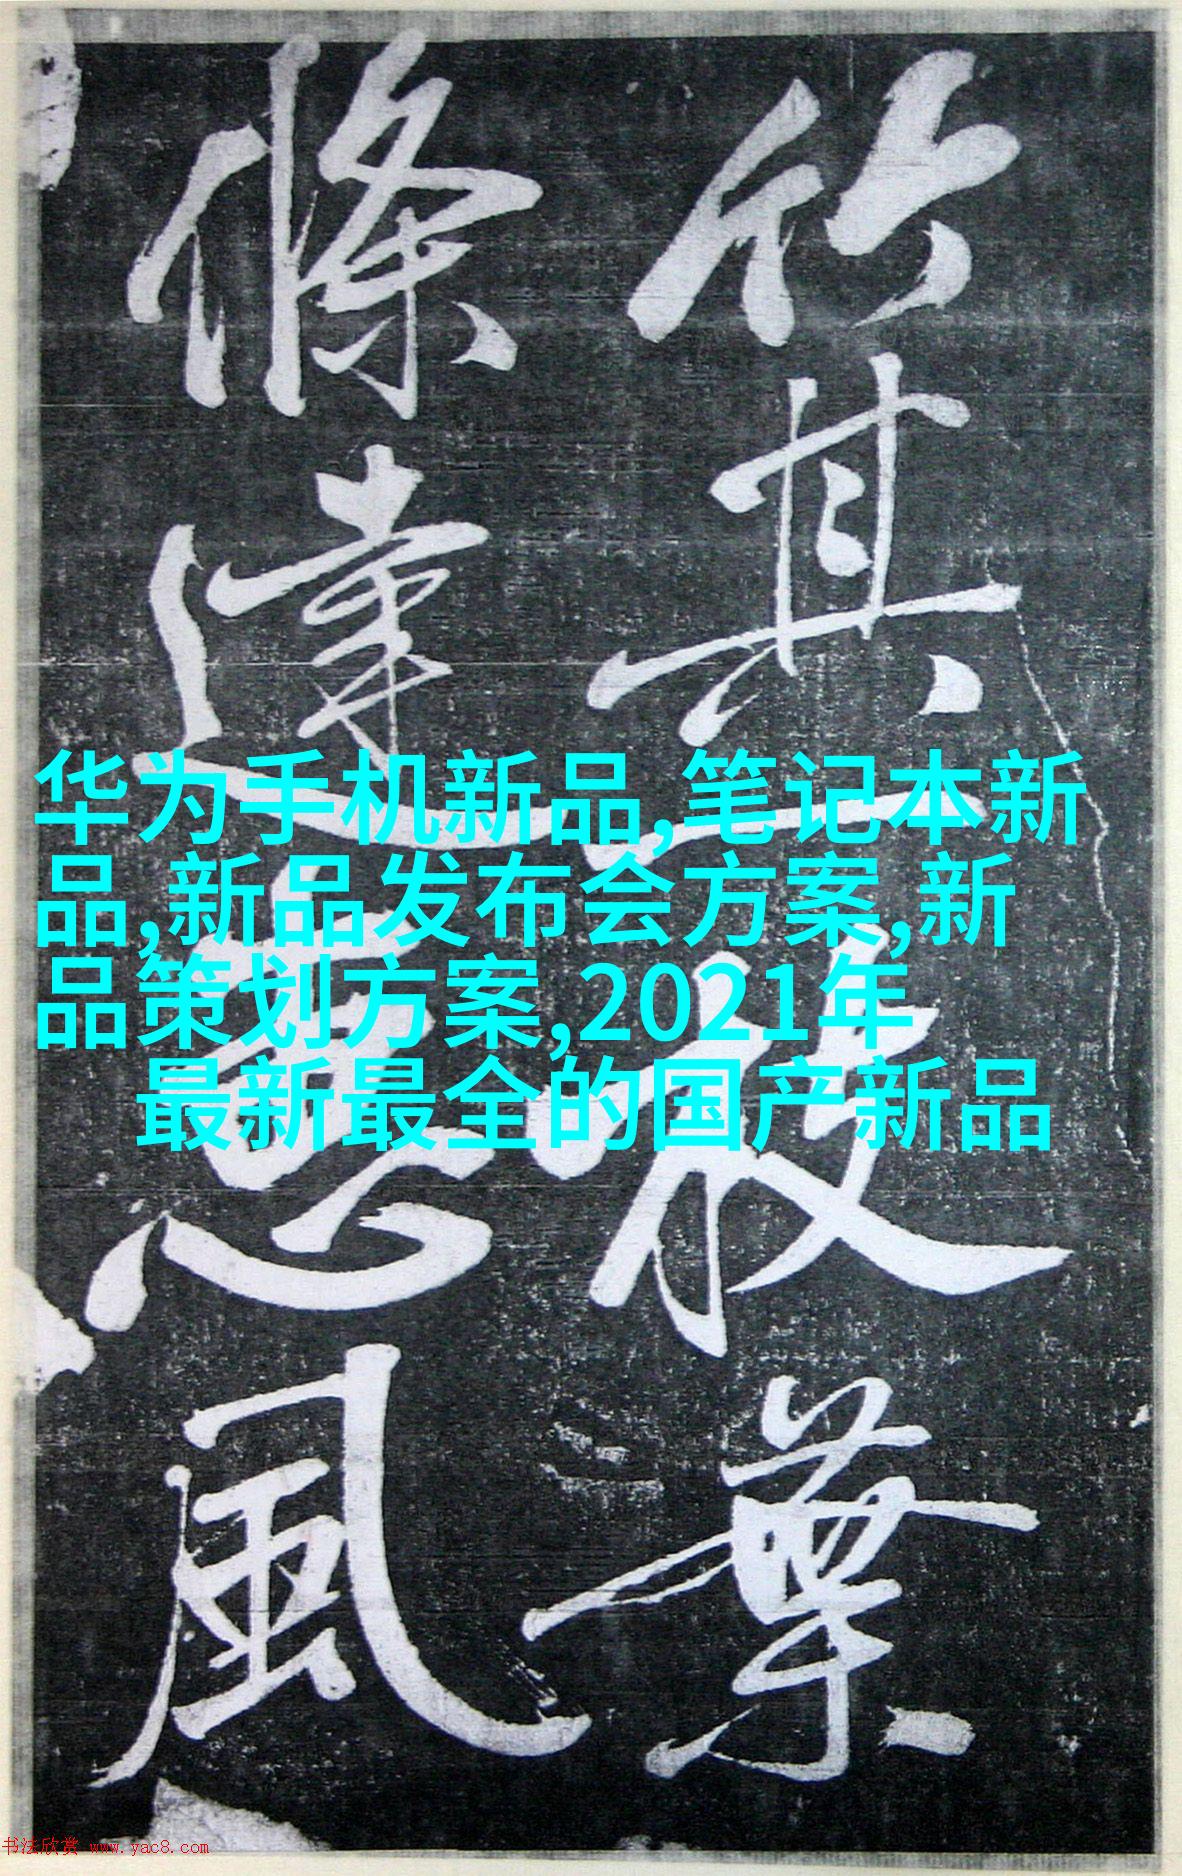 竹其枝葉
條達惠風
华为手机新品,笔记本新
品,新品发布会方案,新
品策划方案,2021年
最新最全的国产新品
书法欣赏 www.yac8.com